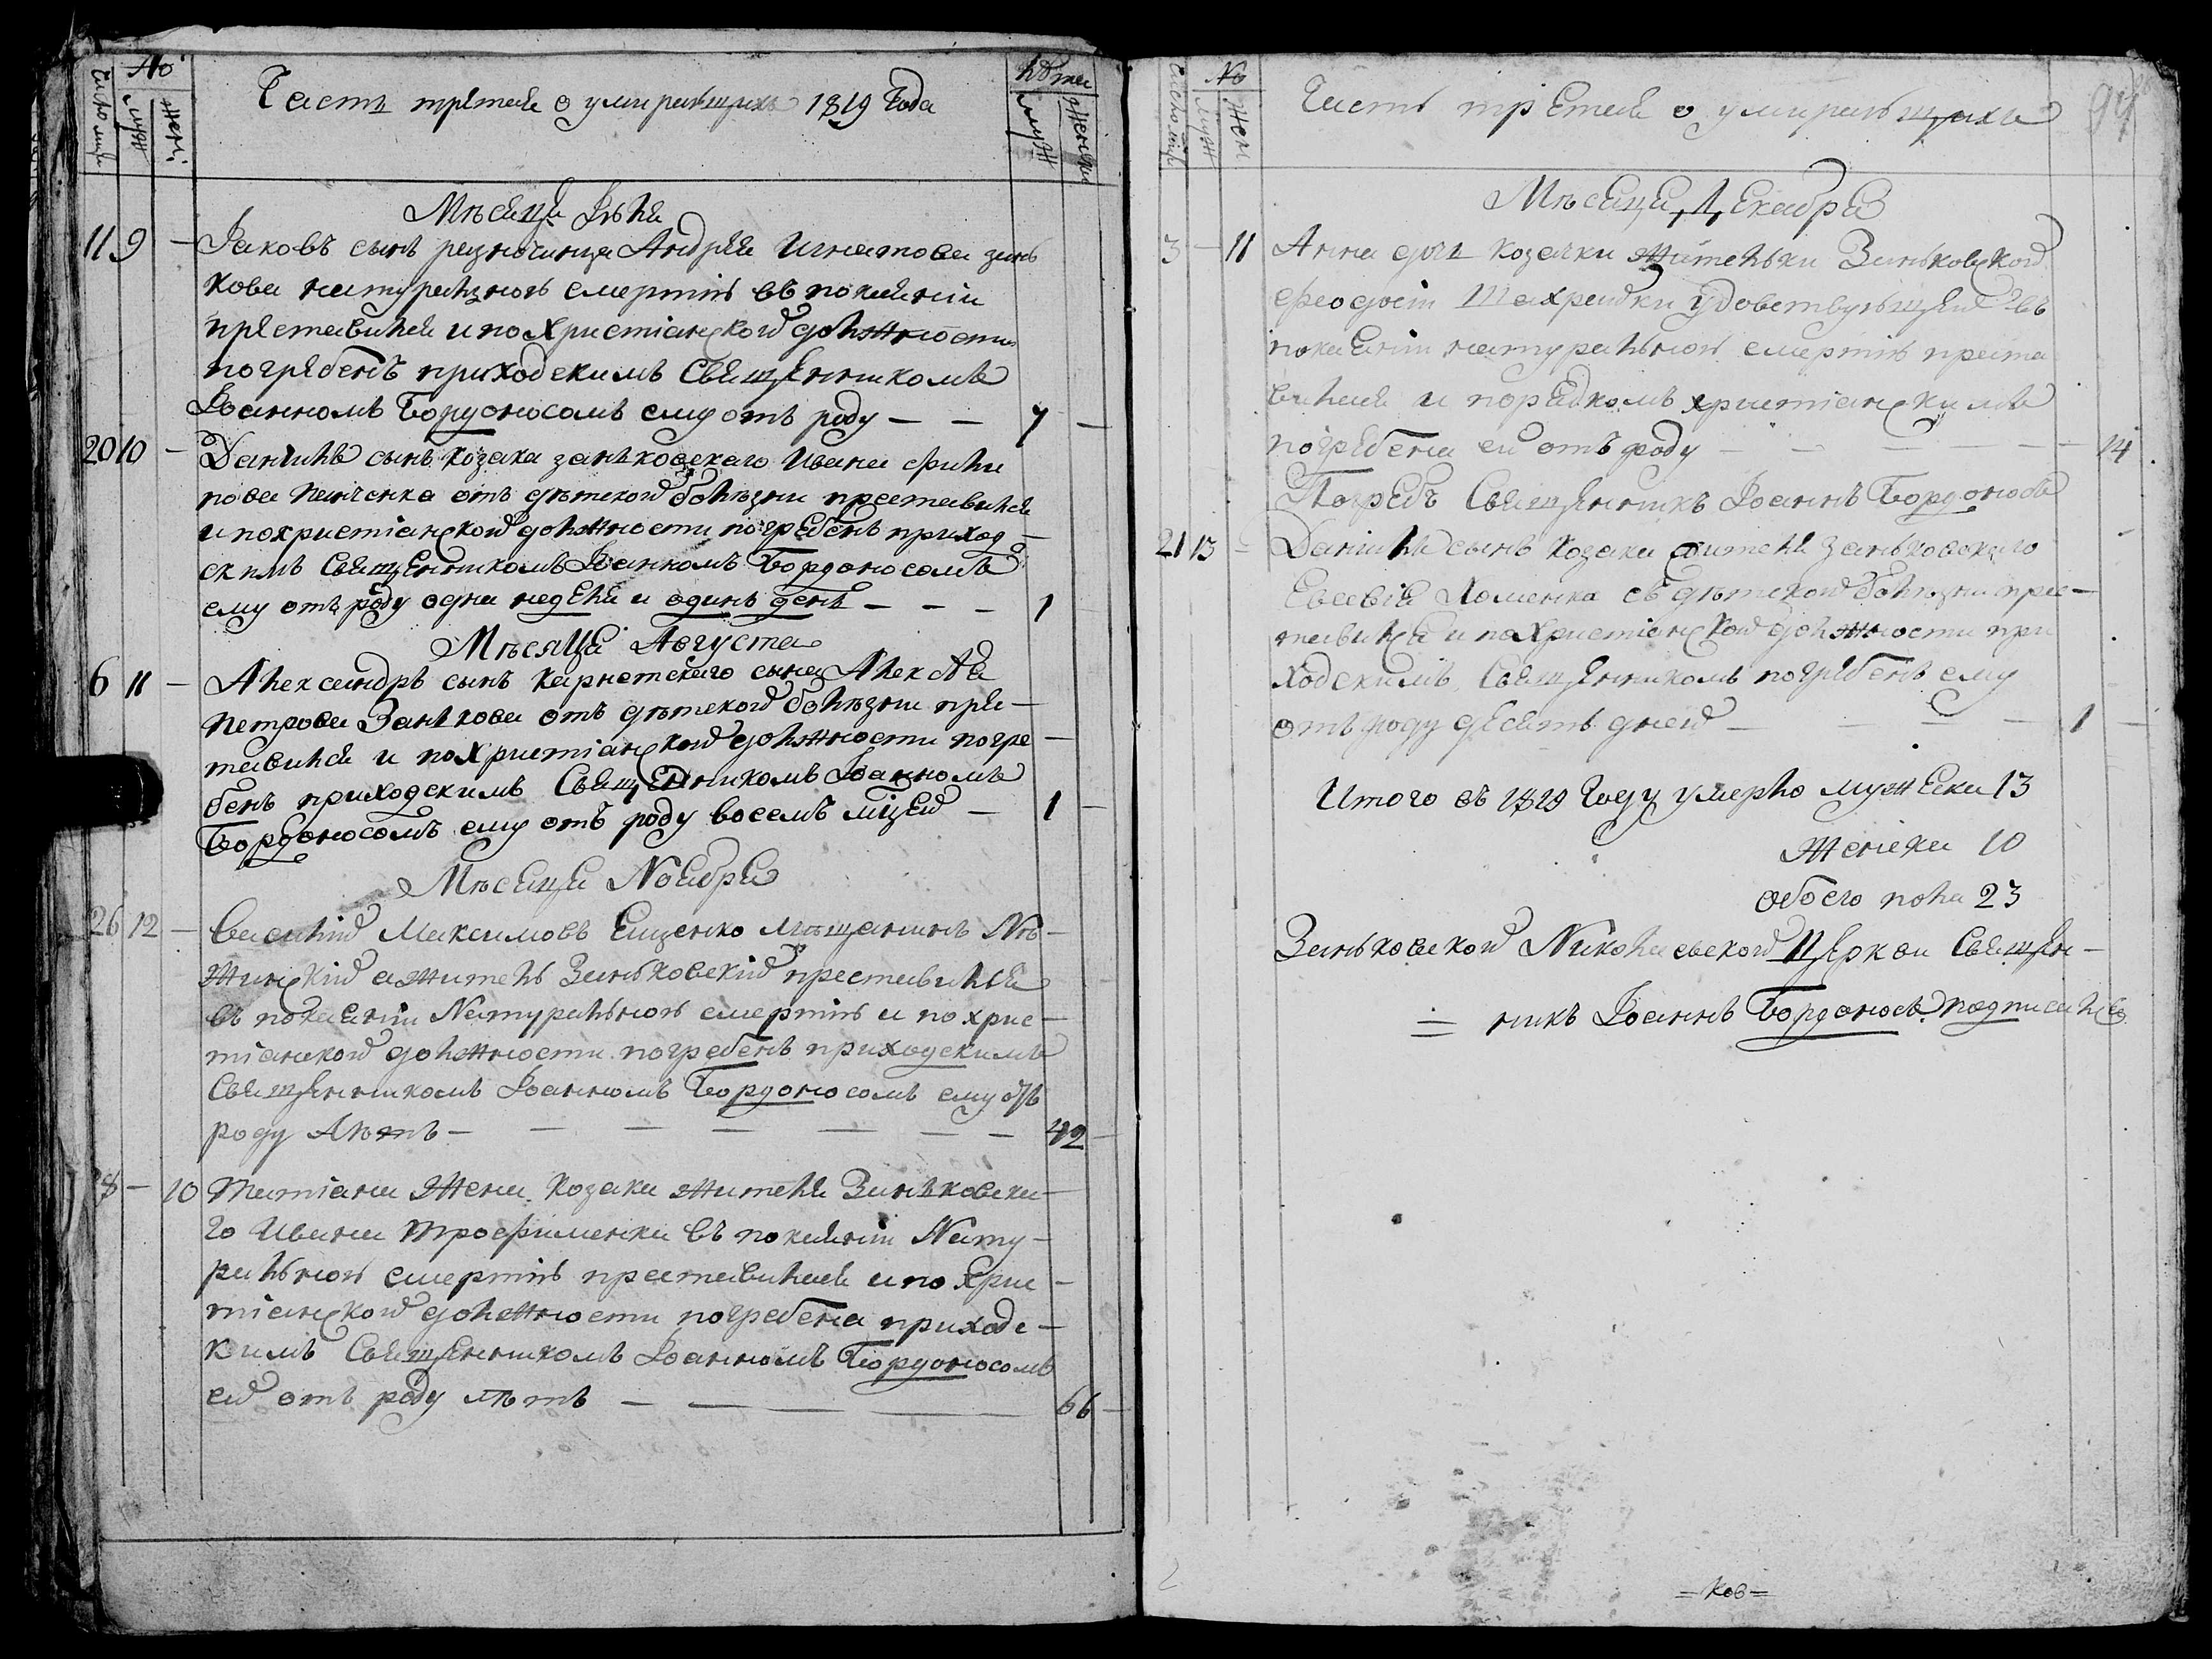 Число мцъ
№
муж
жен:
Часть третая о умиравшихъ 1819 Года
Лѣта
муж
женска
Мѣсяца Iюля
11 9 — Iаковъ сынъ разночинца Андрея Игнатова зинь
кова натуральною смертію въ покаяніи
преставился и по Христіанской должности
погребенъ приходскимъ Священникомъ
Iоанномъ Бордоносомъ ему отъ роду — — 7 —
20 10 — Даніилъ сынъ козака занковскаго Ивана Фили
пова отъ дѣтской болѣзни преставился
и похристіанской должности погребенъ приход
скимъ Священникомъ Iоанномъ Бордоносомъ
ему отъ роду одна неделя и одинъ день — — — 1
Мѣсяца Августа
6 11 — Александръ сынъ сына Алексѣя
Петрова Занкова отъ дѣтской болѣзни пре—
тавился и по Христіанской должности погре —
бенъ приходскимъ Священникомъ Iоанномъ
Бордоносомъ ему отъ роду восемъ мцей — 1 —
Мѣсяца Ноября
26 12 — Василій Максимовъ Ещенко мѣщанинъ Нѣ—
жинскій а житель Зиньковскій преставился
въ покаяніи Натуральною смертію и по хрис—
тіанской должности погребенъ приходскимъ
Священникомъ Iоанномъ Бордоносомъ ему отъ
роду Лѣтъ — — — — — — — 42 —
28 — 10 Татіана Жена козака жителя Зинковска—
го Ивана Трофименка въ покаяніи Нату—
ральною смертію преставилася и по хрис—
тіанской должности погребена приходс—
кимъ Священникомъ Iоанномъ Бордоносомъ
ей отъ роду лѣтъ — — — — 66 —
Число мцъ
№
муж
жен
Часть третая о умиравшихъ
94
Мѣсяца Декабря
3 — 11 Анна дочь козачки жительки Зиньковской
Феодосіи удовствующей въ
покаяніи натуральною смертію преста
вилася и порядкомъ христіанскимъ
погребена ей отъ роду — — — — — 14
Погребъ Священникъ Iоаннъ Бордоносъ
21 13 — Даніилъ сынъ козака жителя занковскаго
Евсевія Ломенка съ дѣтской болѣзни прес—
тавился и по Христіанской должности при
ходскимъ Священникомъ погребенъ ему
отъ роду десять дней — — — — 1 —
Итого въ 1819 Году умерло мужеска 13
женска 10
обоего пола 23
Зиньковской Николаевской Церкви Священ—
= никъ Iоаннъ Бордоносъ подписался
= ков =